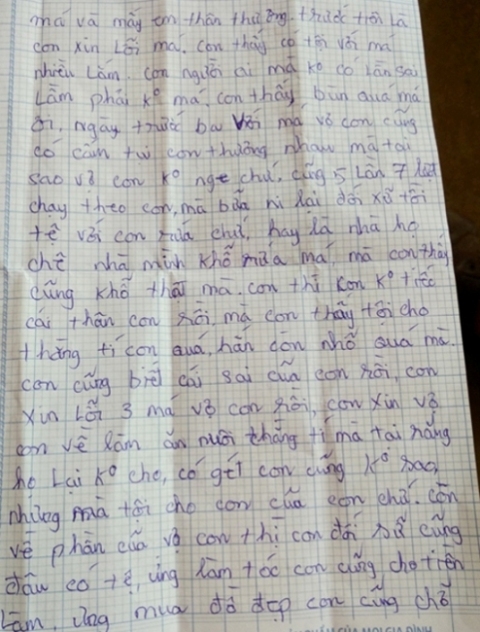 má và mấy em thân thương. trước tiên là
con xin lỗi má. con thấy có tội với má
nhiều lắm. con người ai mà kº có lần sai
lầm phải kº má. con thấy bùn quá má
ơi, ngày trước ba với má vợ con cũng
có cản tụi con thương nhau mà tại
sao vợ con kº nge chứ. cũng 5 lần 7 lượt
chạy theo con, mà bữa ni lại đối xử tồi
tệ với con rứa chứ, hay là nhà họ
chê nhà mình khổ rứa má, mà con thấy
cũng khổ thật mà. con thì con kº tiếc
cái thân con rồi, mà con thấy tội cho
thằng tí con quá, hắn còn nhỏ quá mà.
con cũng biết cái sai của con rồi, con
xin lỗi 3 má vợ con rồi, con xin vợ
con về làm ăn nuôi thằng tí mà tại răng
họ lại kº cho, có gét con cũng kº sao,
nhưng mà tội cho con của con chứ. còn
về phần của vợ con thì con đối xử cũng
đâu có tệ, ưng làm tóc con cũng cho tiền
làm, ưng mua đồ đẹp con cũng chở